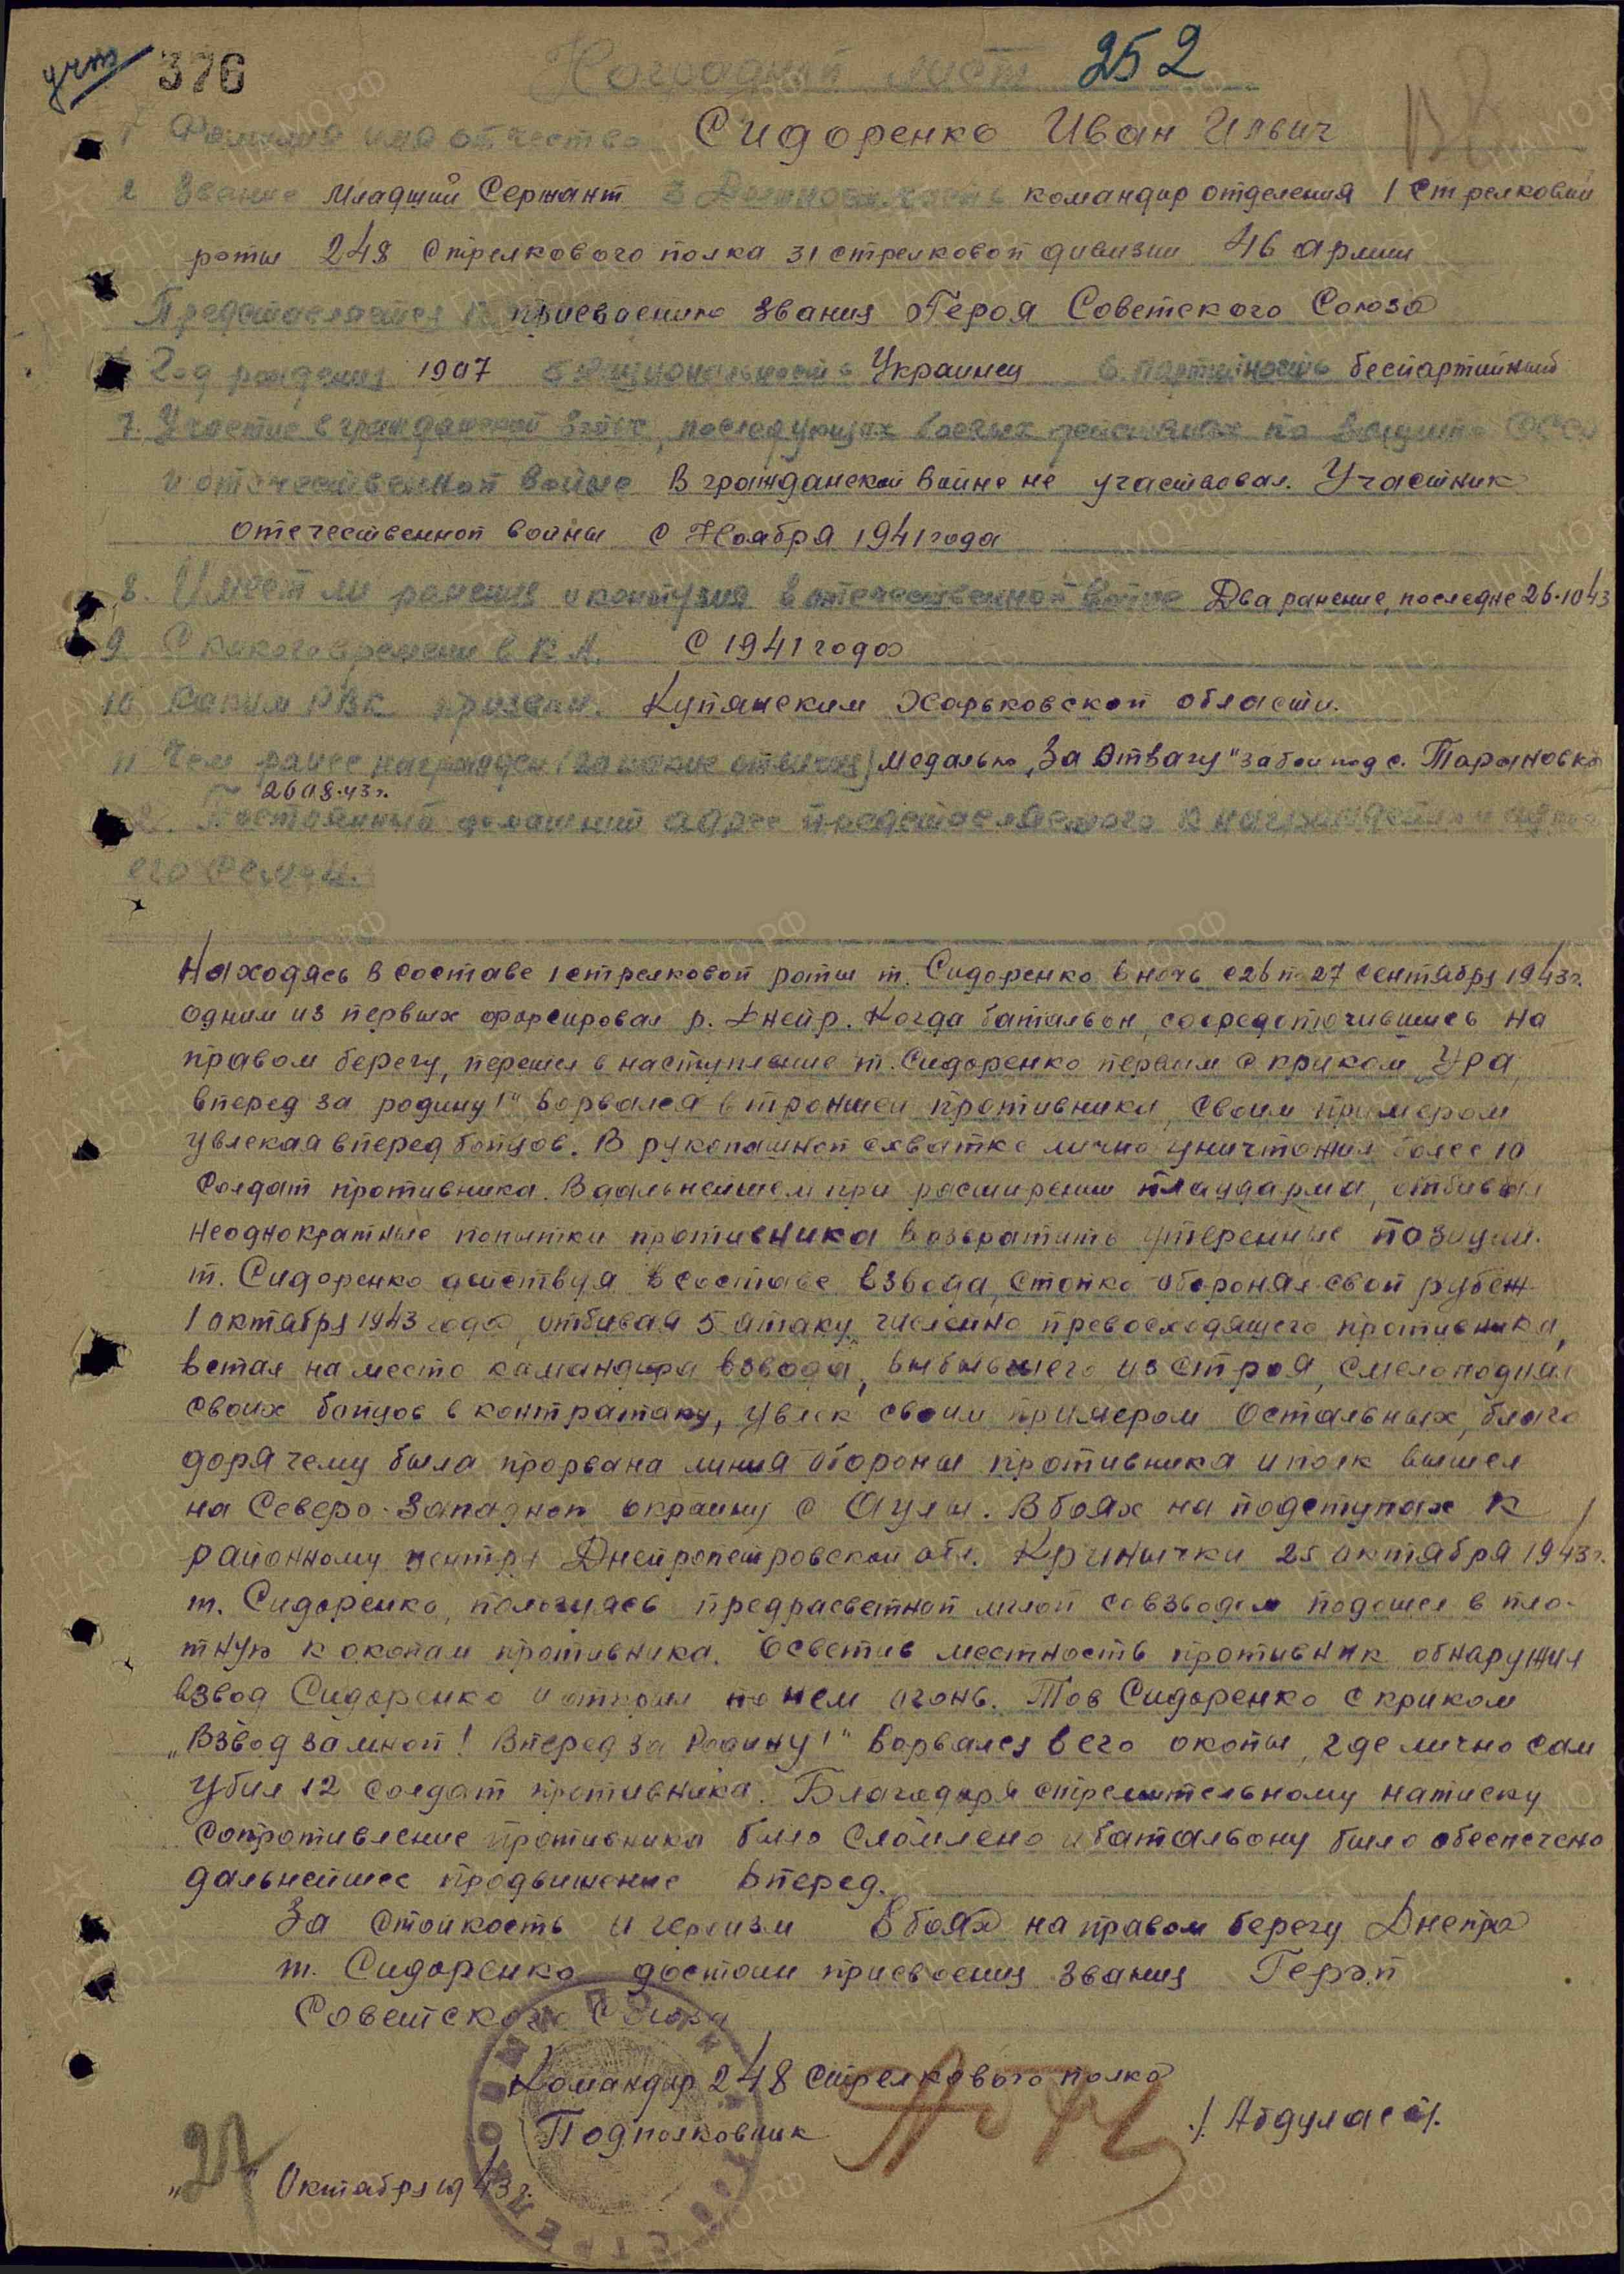 учт 376 Наградной лист 252
1 Фамилия имя отчество Сидоренко Иван Ильич
2 Звание Младший Сержант 3 Должность часть командир отделения 1 стрелковой
роты 248 стрелкового полка 31 стрелковой дивизии 46 армии
Представляется к присвоению звания Героя Советского Союза
Год рождения 1907 5 Национальность Украинец 6. партийность беспартийный
7. Участие в гражданской войне, последующих боевых действиях по защите СССР
и отечественной войне В гражданской войне не участвовал. Участник
отечественной войны с Ноября 1941 года
8. Имеет ли ранения и контузия в отечественной войне Два ранение, последне 26.10.43
9 С какого времени в К.А. С 1941 года
10 Каким РВК призван. Купянским Харьковской области.
11 Чем ранее награжден (за какие отличия) медалью „За Отвагу" за бои под с. Тарановка
26.08.43 г.
12. Постоянный домашний адрес представляемого к награждению и адрес
его семьи.
Находясь в составе 1 стрелковой роты т. Сидоренко в ночь с 26 по 27 сентября 1943 г.
одним из первых форсировал р. Днепр. Когда батальон, сосредоточившись на
правом берегу, перешел в наступление т. Сидоренко первым с криком „Ура,
вперед за родину!" ворвался в траншеи противника, своим примером
увлекая вперед бойцов. В рукопашной схватке лично уничтожил более 10
солдат противника. В дальнейшем при расширении плацдарма, отбивая
неоднократные попытки противника возвратить утеренные позиции.
т. Сидоренко действуя в составе взвода, стойко оборонял свой рубеж
1 октября 1943 года, отбивая 5 атаку численно превосходящего противника,
встал на место командира взвода, выбывшего из строя, смело поднял
своих бойцов в контратаку, увлек своим примером остальных, благо
доря чему была прорвана линия обороны противника и полк вышел
на Северо-Западной окраину с Аулы. В боях на подступах к
районному центру Днепропетровской обл. Кринычки 25 октября 1943 г.
т. Сидоренко, пользуясь предрасветной мглой со взводом подошел в пло-
тную к окопам противника. Осветив местность противник обнаружил
взвод Сидоренко и открыл по нем огонь. Тов Сидоренко с криком
„Взвод за мной! Вперед за Родину!" ворвался в его окопы, где лично сам
убил 12 солдат противника. Благодаря стремительному натиску
сопротивление противника было сломлено и батальону было обеспечено
дальнейшее продвижение вперед.
За стойкость и героизм в боях на правом берегу Днепра
т. Сидоренко достоин присвоения звания Герой
Советского Союза
Командир 248 стрелкового полка
Подполковник /Абдулаев/.
„27" Октября 1943 г.